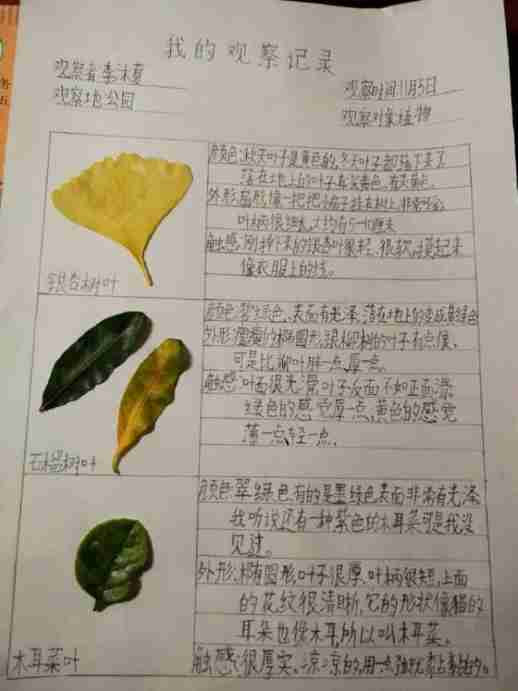 我的观察记录
观察者李沐夏
观察时间11月5日
观察地公园
观察对象植物
颜色:秋天叶子是黄色的,冬天叶子都落下去了
落在地上的叶子有淡黄色
外形:扇形,像一把把小扇子挂在树上,非常
叶柄很细
触感:刚掉下来的银杏叶很轻、很软,摸起来
像衣服上的
银杏树叶
颜色:翠绿色、表面有光泽,落在地上的变成黄绿色
外形:的椭圆形,跟柳树的叶子有点像,
可是比柳叶胖一点,厚一点。
触感:叶面很光滑叶子反面不如正面滑,
绿色的感觉厚一点,黄色的感觉
薄一点,轻一点。
石榴树叶
颜色:翠绿色,有的是墨绿色表面非常有光泽
我听说还有一种紫色的木耳菜可是我没
见过。
外形:椭圆形,叶子很厚,叶柄很短,上面
的花纹很清晰,它的形状像猫的
耳朵也像木耳,所以叫木耳菜。
木耳菜叶
触感:很厚实、凉凉的,用一点